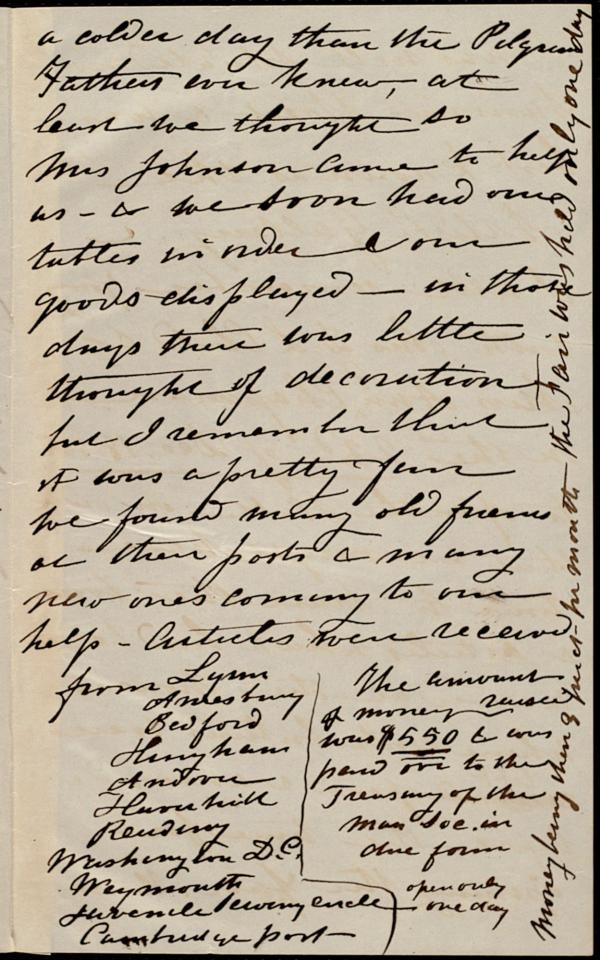 a colder day than the Pilgrim
Fathers ever knew, at
least we thought so
Mrs Johnson came to help
us - & we soon had our
tables in order & our
goods displayed — in those
days there was little
thought of decoration
but I remember that
it was a pretty fair
we found many old friends
at their posts & many
new ones coming to our
help - Articles were received
from Lynn
Amesbury
Bedford
Hingham
Andover
Haverhill
Reading
Washington D.C.
Weymouth
Juvenile Sewing circle
Cambridge port
The amount
of money raised
was $550 & was
paid over to the
Treasury of the
Mass Soc. in
due form
open only
one day
Money being then 3 pr ct. per month the Fair was held only one day